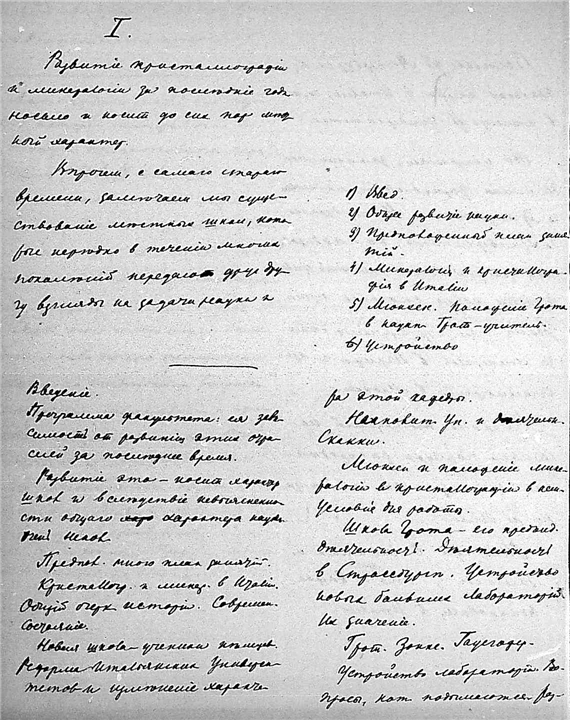 I.
Развитiе кристаллографiи
и минералогiи за последнiе года
носило и носит до сих пор
характер.
Впрочем, с самаго стараго
времени, замечаем мы суще-
ствованiе местных школ, кото
рыя нередко в теченiи многих
поколенiй передают друг дру
гу взгляды на задачи науки и
1) Введ.
2) Общее развитiе науки.
3) Предположенный план заня
тiй.
4) Минералогiя и кристаллогра-
фiя в Италiи
5) Мюнхен. Положенiе Грота
в науке. Грот-учитель.
6) Устройство
Введенiе.
Программа факультета: ея зави
симость от развитiя этих отра
слей за последнее время.
Развитiе это - носит характер
школ и вследствiе невыясненно
сти общаго характера науки
Предпол. мною план занятiй.
Кристаллогр. и минер. в Италiи.
Общiй очерк исторiи. Современ.
Состоянiе.
Новая школа - ученики немцев.
Реформа Итальянских Универси
тетов и измененiе характе-
ра этой кафедры.
Неаполит. Ун. и деятельн.
Скакки.
Мюнхен и положенiе мине
ралогiи и кристаллографiи в нем
Условiе для работы.
Школа Грота - его предыд.
деятельность. Деятельность
в Страссбурге. Устройство
новых больших лабораторiй
Их значенiе.
Грот. Зонке. Гаусгофер.
Устройство лабораторiй. Во
просы, кот подымаются. Раз-